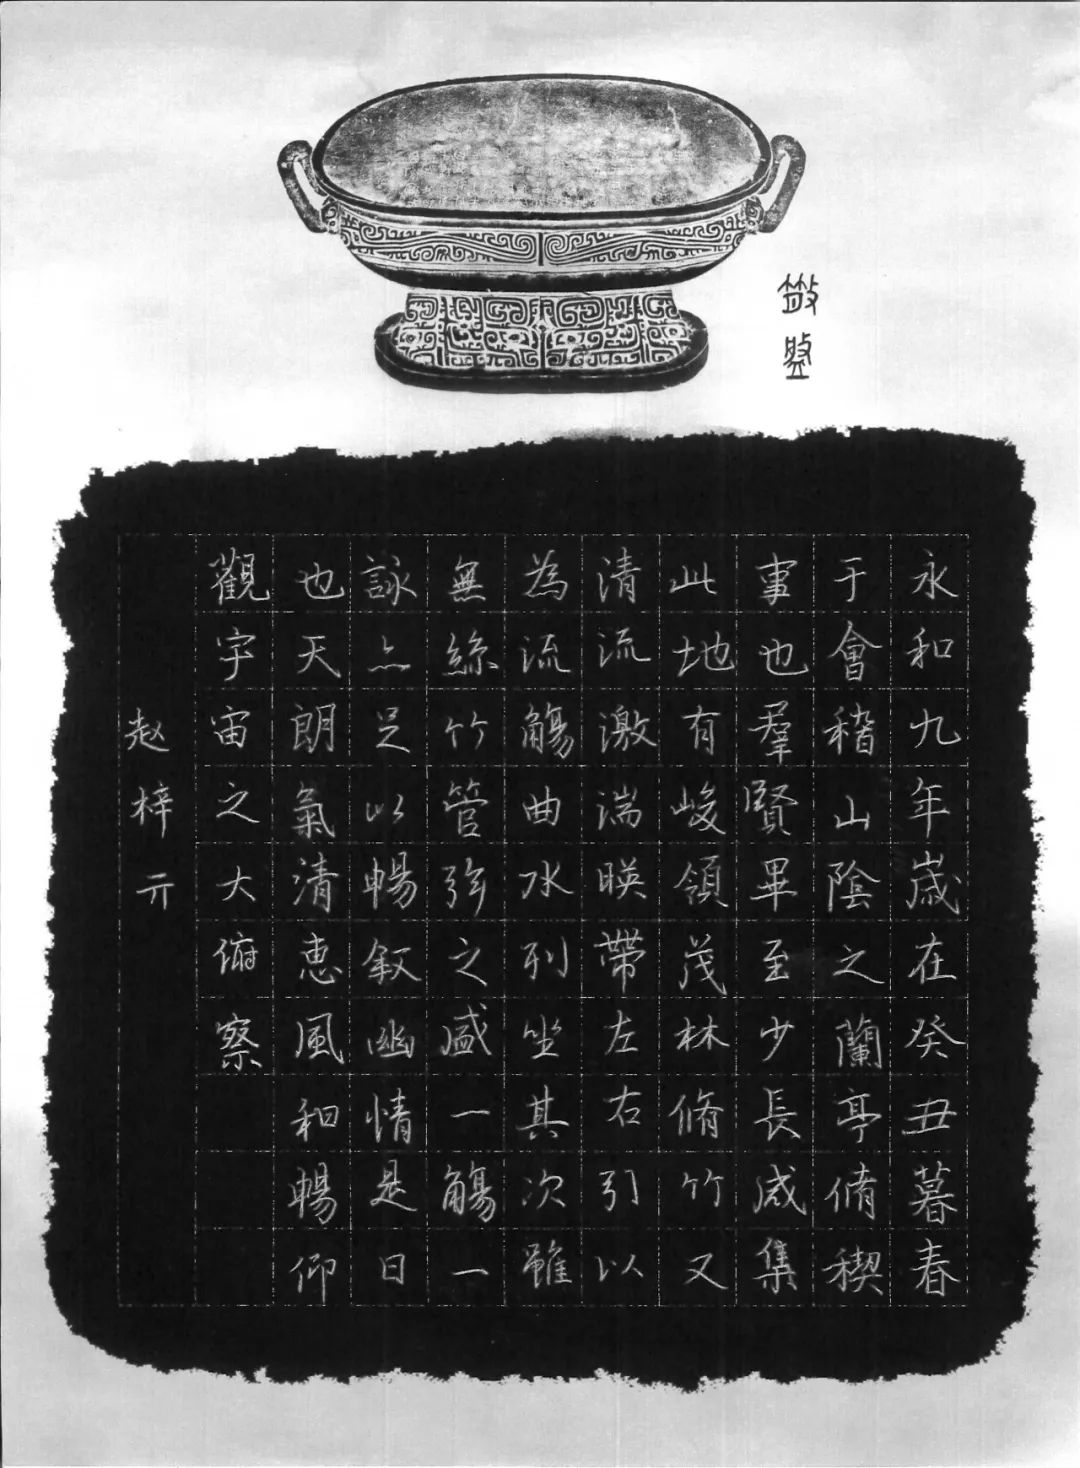 永和九年歲在癸丑暮春
于會稽山陰之蘭亭脩稧
事也羣賢畢至少長咸集
此地有峻領茂林脩竹又
清流激湍暎帶左右引以
為流觴曲水列坐其次雖
無絲竹管弦之盛一觴一
詠亦足以暢叙幽情是日
也天朗氣清惠風和暢仰
觀宇宙之大俯察
赵梓亓